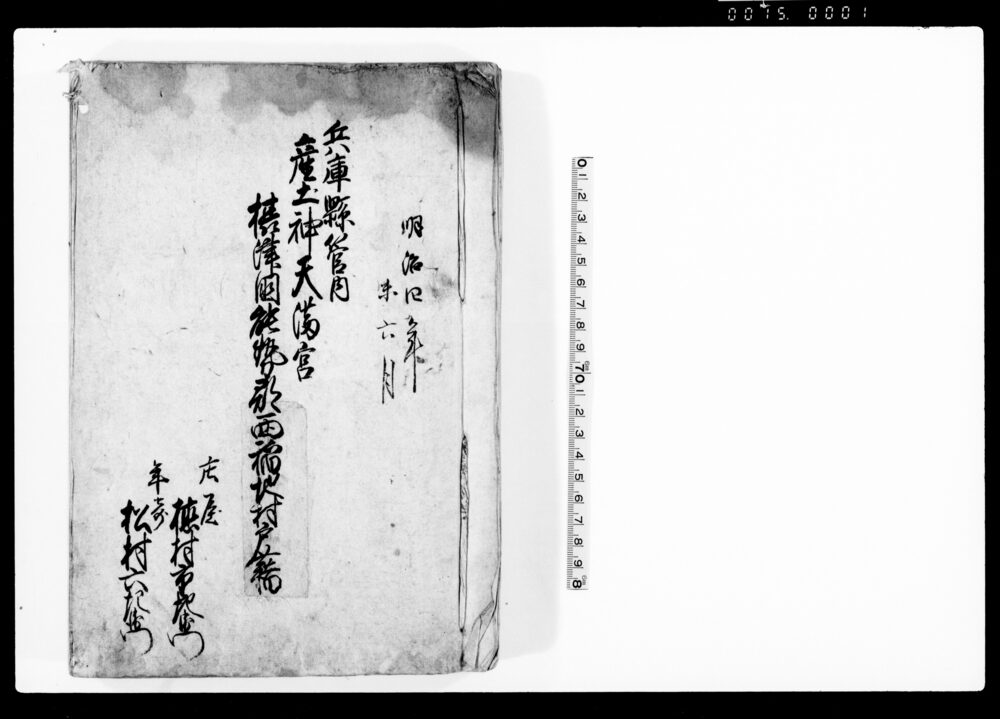 0075. 0001
明治四辛年
未六月
兵庫縣管内
産土神天満宮
摂津國能勢郡西稲地村戸籍
庄屋
村市郎左衛門
年寄
松村六左衛門
0 1 2 3 4 5 6 7 8 9 70 1 2 3 4 5 6 7 8 9 8